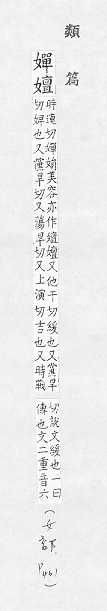 類篇
嬋嬗
時連切嬋娟美容亦作嬗嬗又他干切緩也又黨旱
切婢也又儻旱切又蕩旱切又上演切吉也又時戰
切說文緩也一曰
傳也文二重音六
(女部 P461)